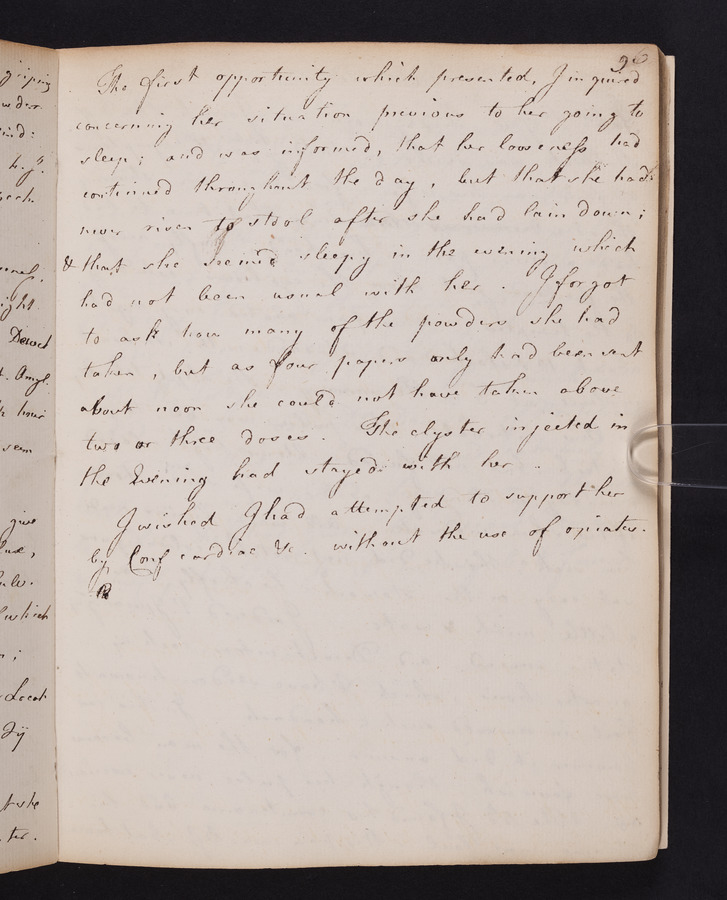 96
The first opportunity which presented, I inquired
concerning her situation previous to her going to
sleep; and was informed, that her looseness had
continued throughout the day, but that she had
never risen to stool after she had lain down;
& that she seemed sleepy in the evening which
had not been usual with her. I forgot
to ask how many of the powders she had
taken, but as four papers only had been sent
about noon she could not have taken above
two or three doses. The clyster injected in
the Evening had stayed with her.
I wished I had attempted to support her
by Conf cardiac &c. without the use of opiates.